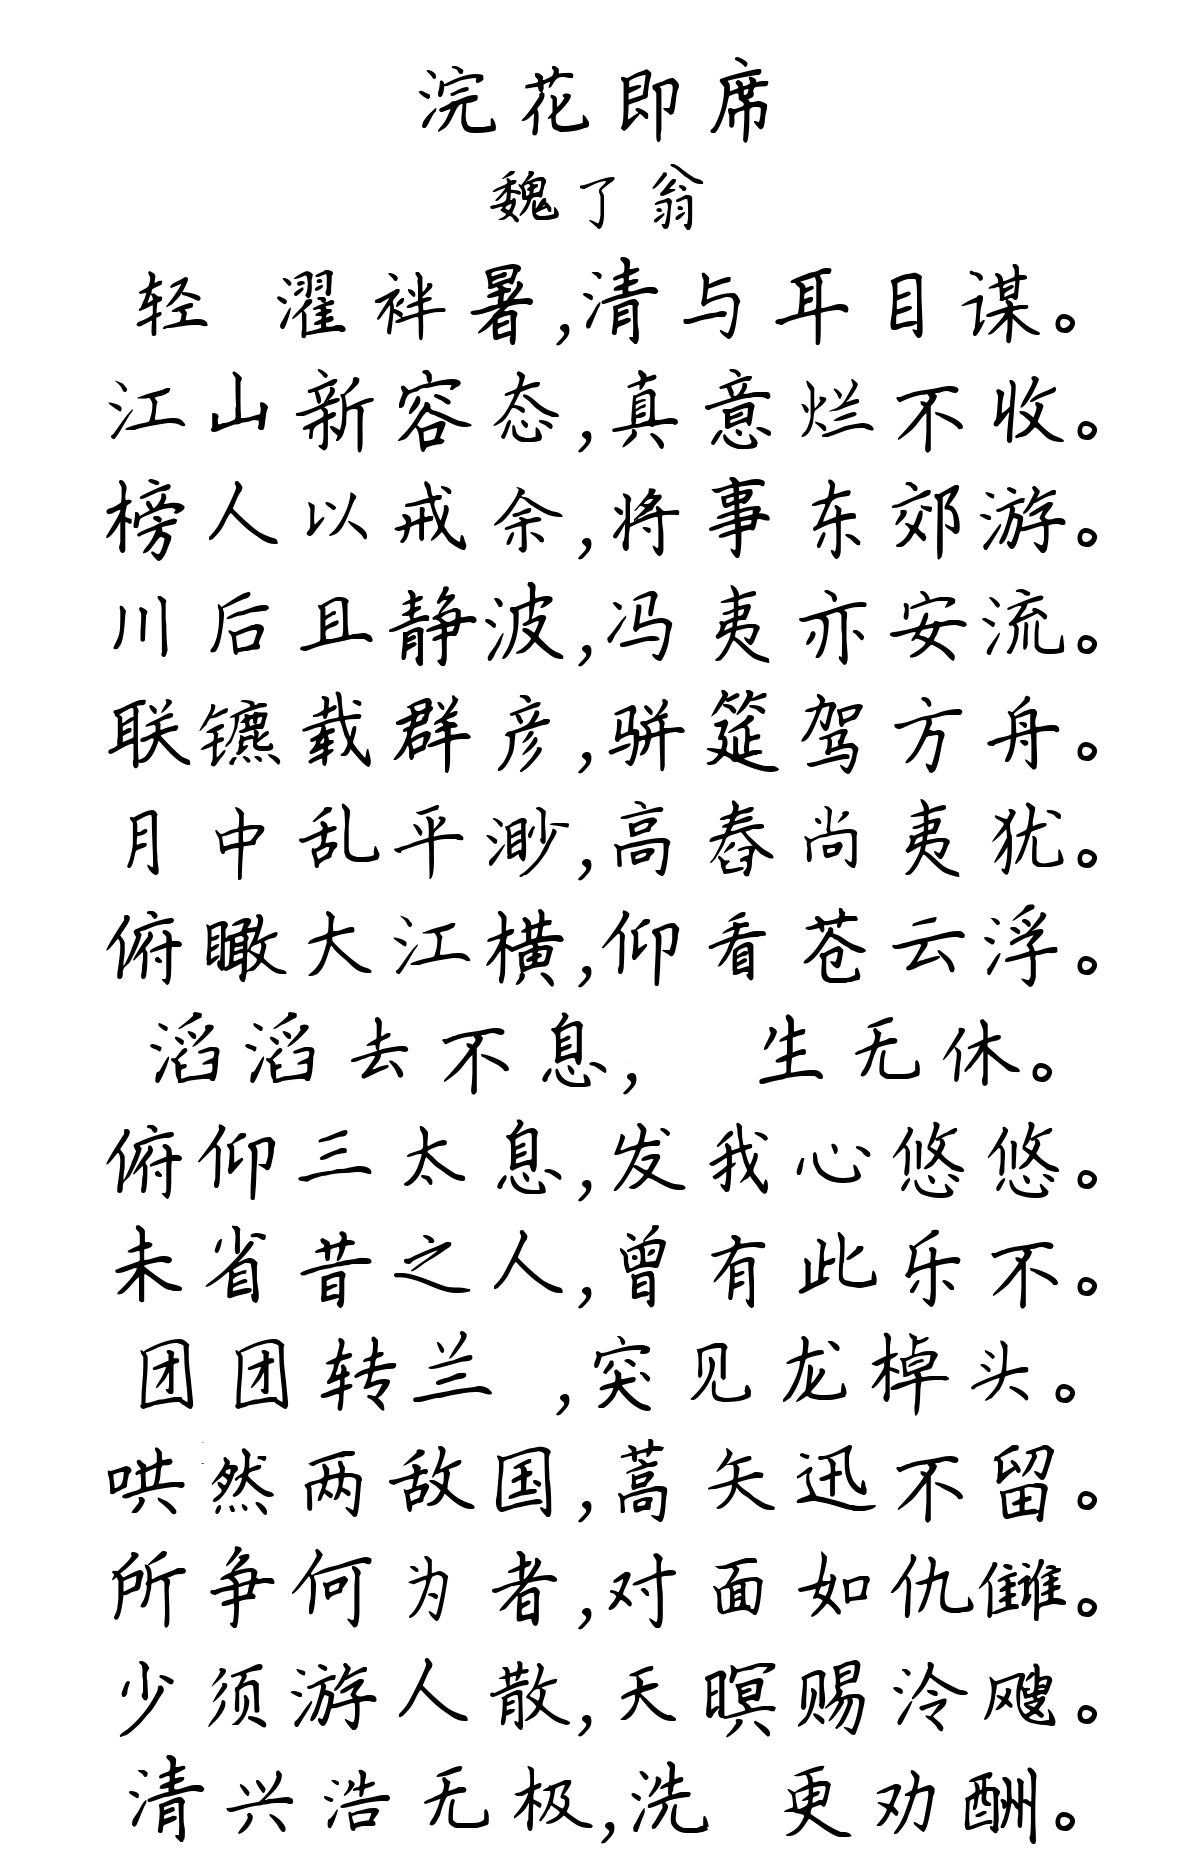 浣花即席
魏了翁
轻 濯袢暑,清与耳目谋。
江山新容态,真意烂不收。
榜人以戒余,将事东郊游。
川后且静波,冯夷亦安流。
联镳载群彦,骈筵驾方舟。
月中乱平渺,高舂尚夷犹。
俯瞰大江横,仰看苍云浮。
滔滔去不息, 生无休。
俯仰三太息,发我心悠悠。
未省昔之人,曾有此乐不。
团团转兰 ,突见龙棹头。
哄然两敌国,蒿矢迅不留。
所争何为者,对面如仇雠。
少须游人散,天暝赐泠飕。
清兴浩无极,洗 更劝酬。